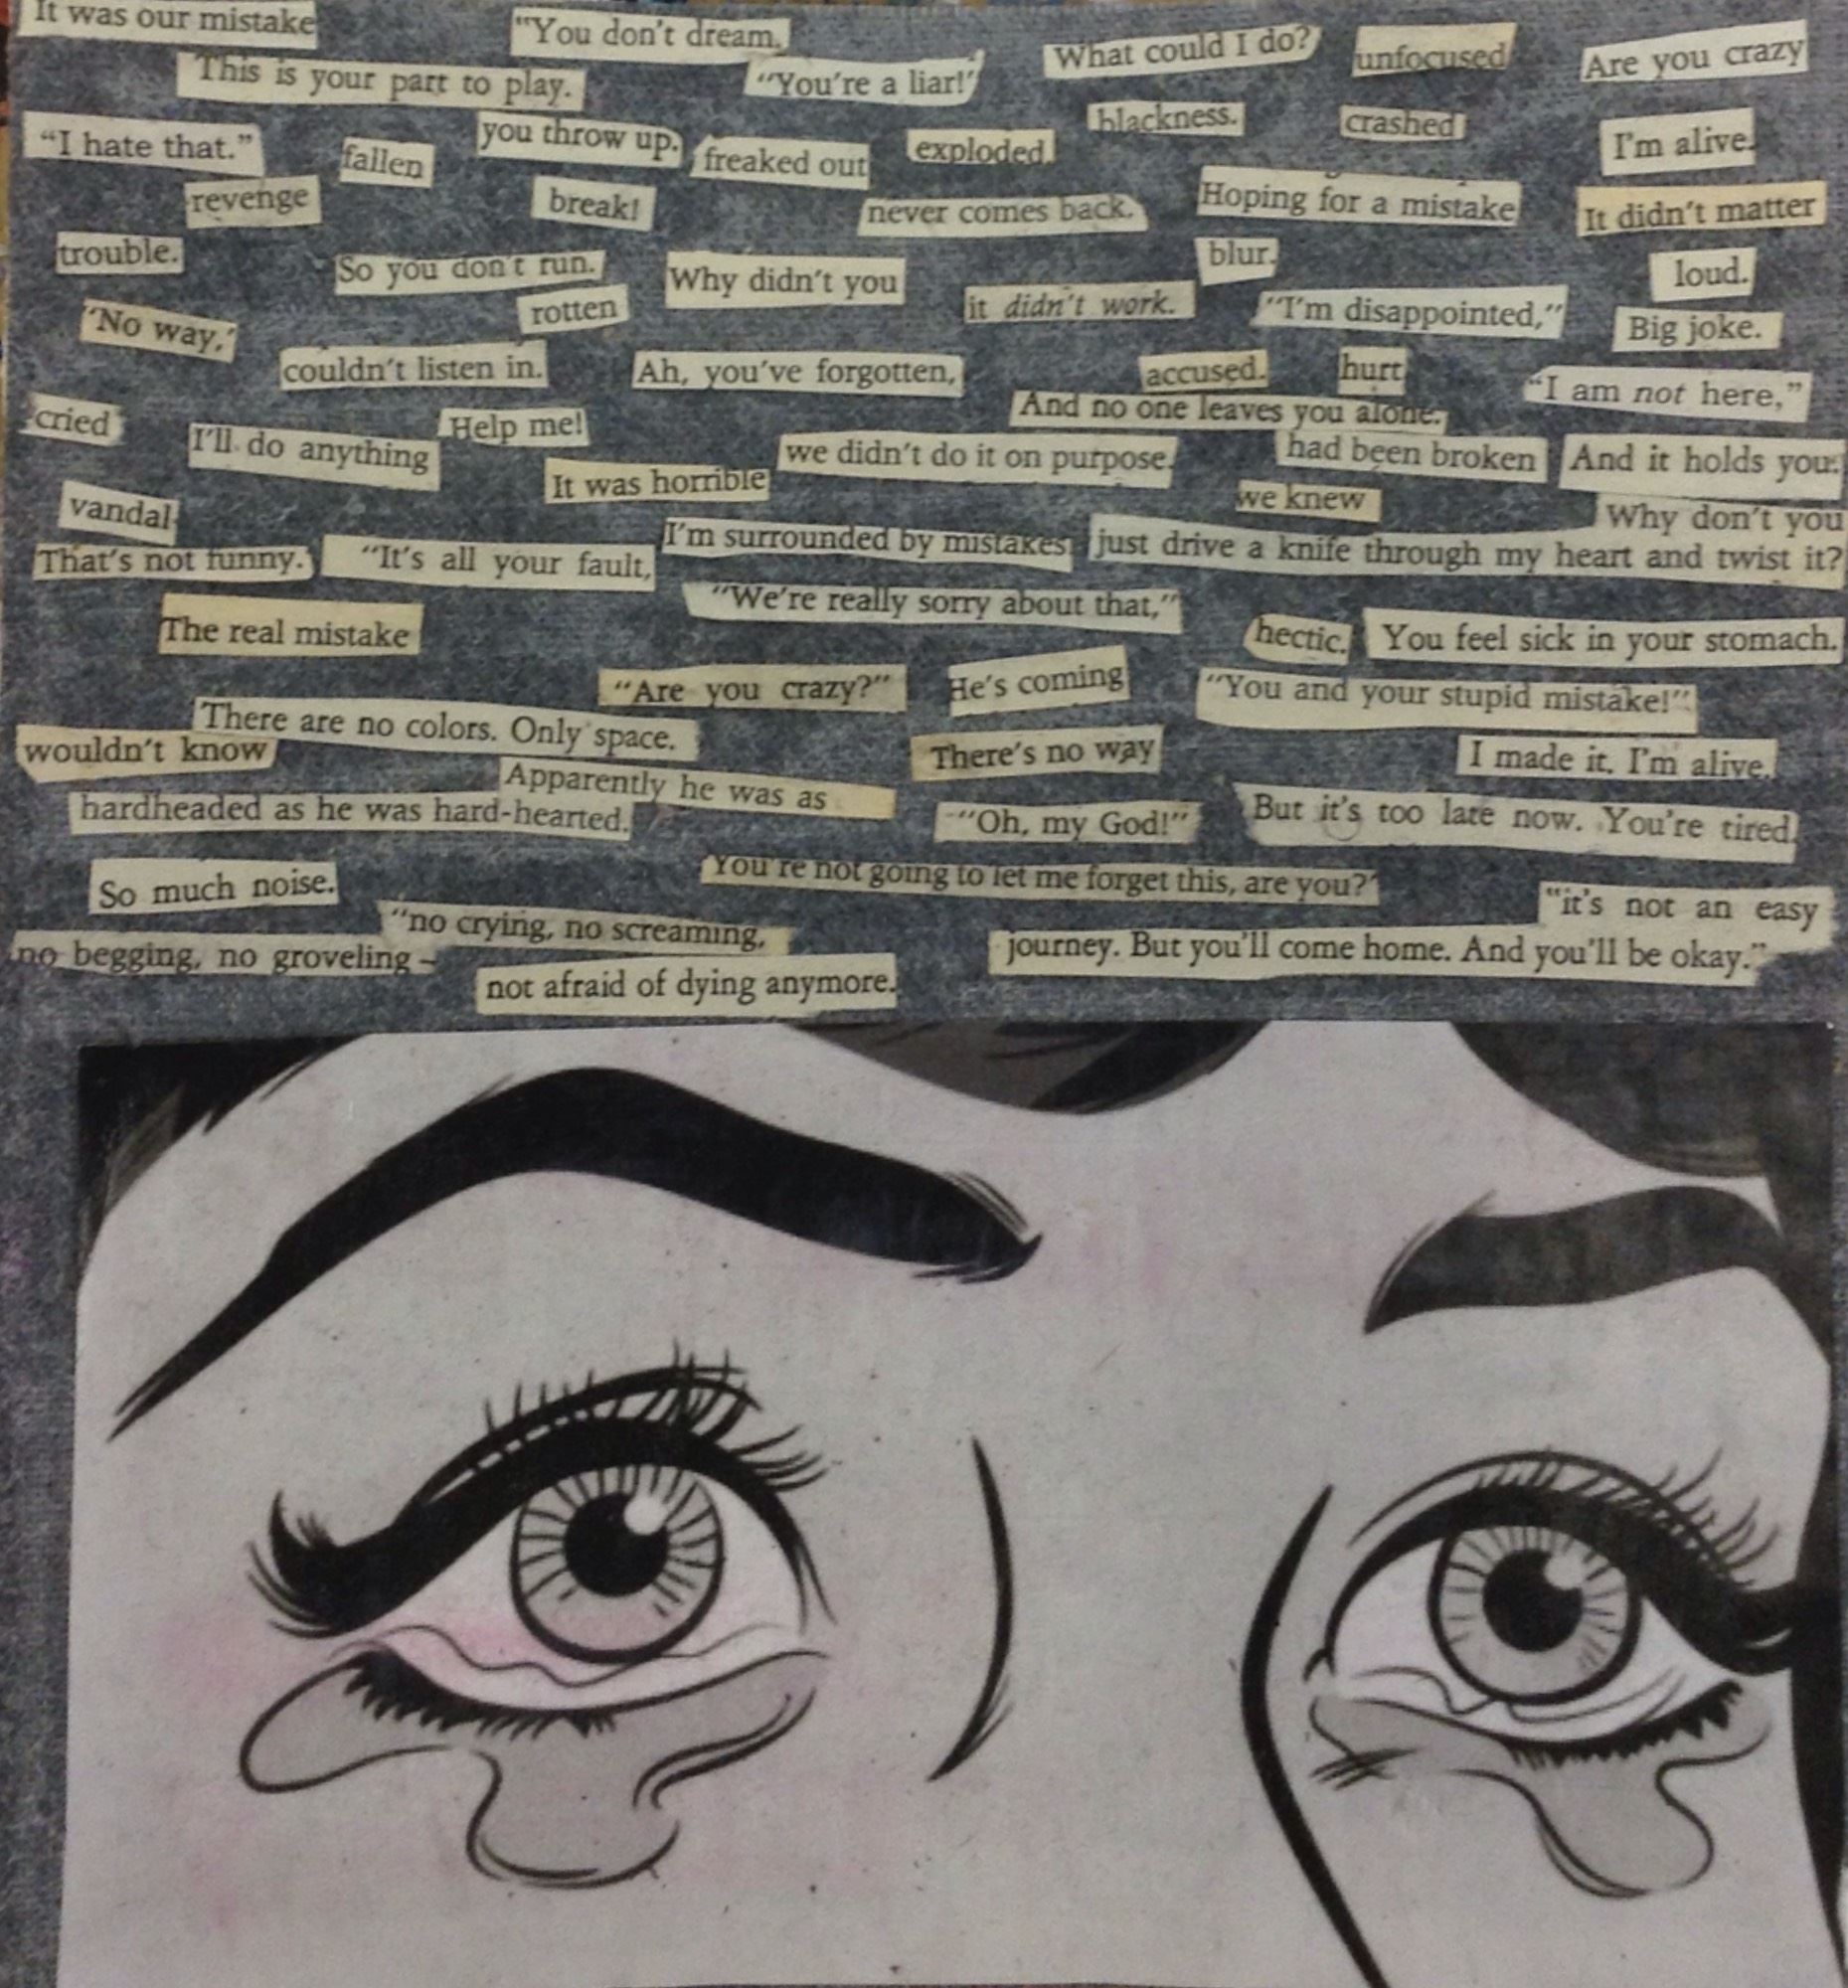 It was our mistake
"You don't dream.
What could I do?
unfocused
Are you crazy
This is your part to play.
"You're a liar!"
blackness.
crashed
"I hate that."
fallen
you throw up.
freaked out
exploded.
I'm alive.
revenge
break!
never comes back.
Hoping for a mistake
It didn't matter
trouble.
So you don't run.
Why didn't you
blur.
loud.
'No way,'
rotten
it didn't work.
"I'm disappointed,"
Big joke.
couldn't listen in.
Ah, you've forgotten,
accused.
hurt
"I am not here,"
cried
I'll do anything
Help me!
And no one leaves you alone.
It was horrible
we didn't do it on purpose.
had been broken
And it holds you.
vandal
we knew
Why don't you
just drive a knife through my heart and twist it?
That's not funny.
"It's all your fault,
I'm surrounded by mistakes
"We're really sorry about that,"
The real mistake
hectic.
You feel sick in your stomach.
"Are you crazy?"
He's coming
"You and your stupid mistake!"
There are no colors. Only space.
wouldn't know
There's no way
I made it. I'm alive.
Apparently he was as
hardheaded as he was hard-hearted.
"Oh, my God!"
But it's too late now. You're tired.
So much noise.
You're not going to let me forget this, are you?"
"it's not an easy
journey. But you'll come home. And you'll be okay."
"no crying, no screaming,
no begging, no groveling –
not afraid of dying anymore.